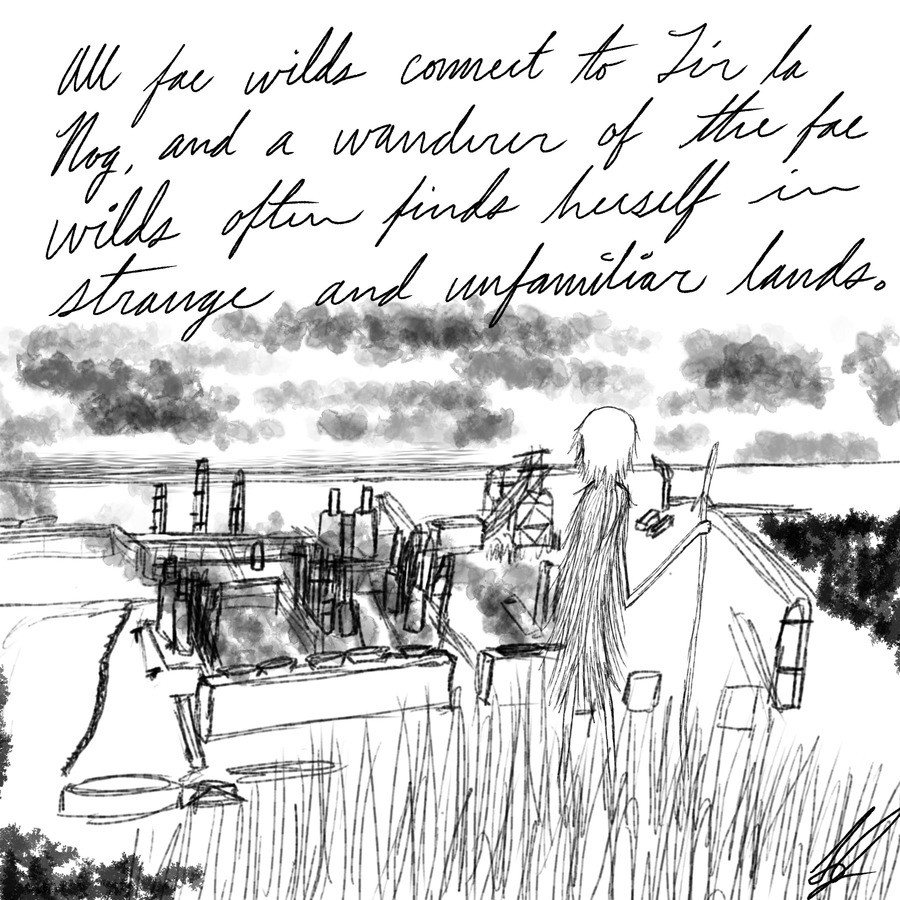 All fae wilds connect to Tír la
Nog, and a wanderer of the fae
wilds often finds herself in
strange and unfamiliar lands.